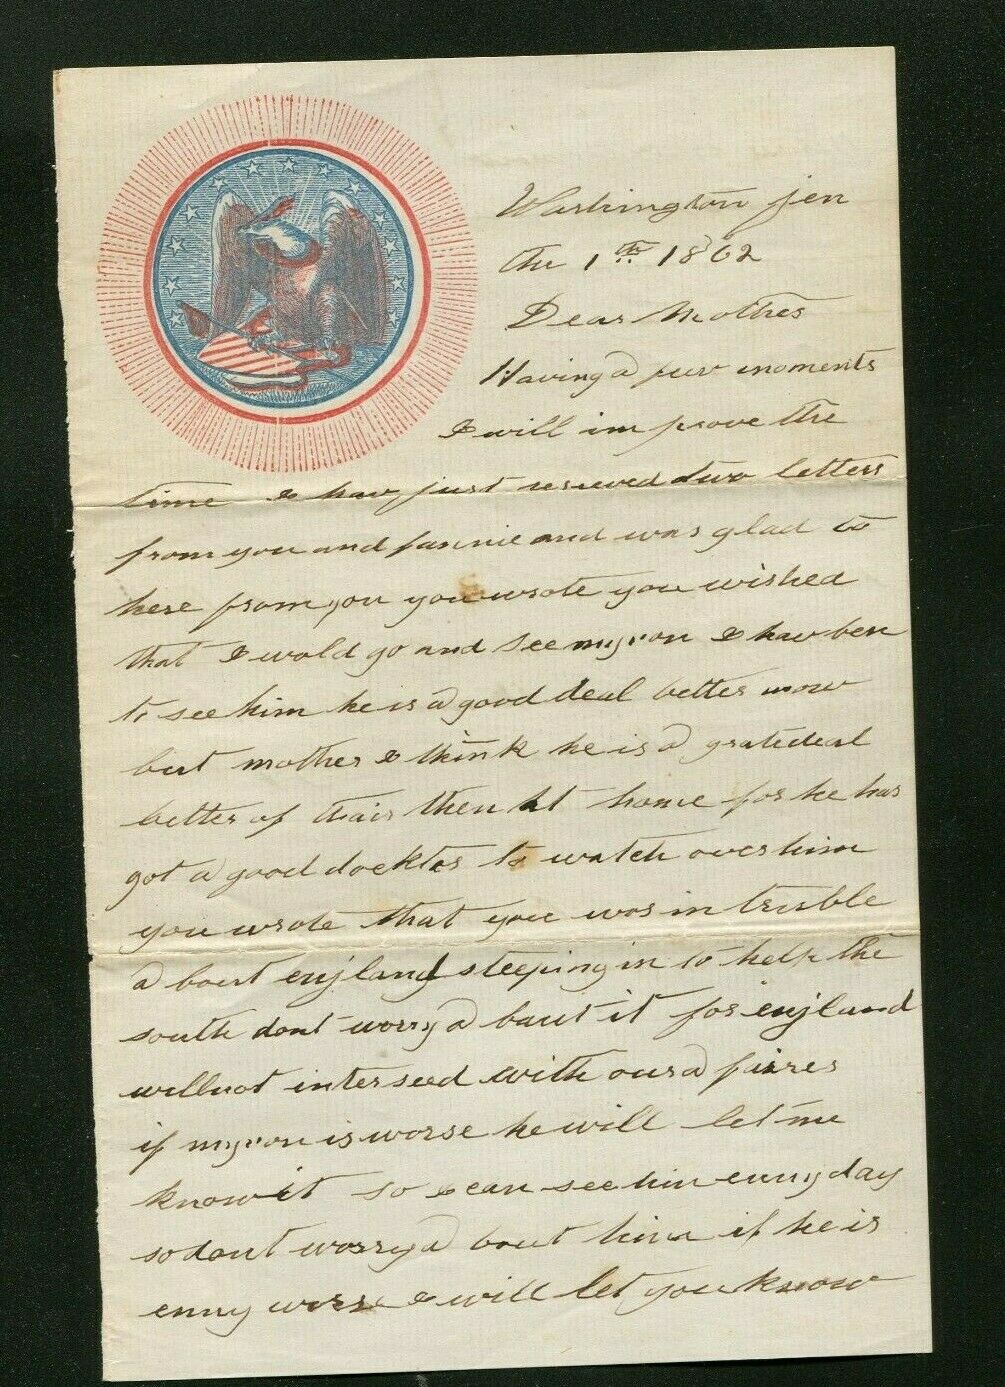 Washington jen
the 1th 1862
Dear Mother
Having a fuw moments
I will im prove the
time I hav just reseved two letters
from you and fannie and was glad to
here from you you wrote you wished
that I wold go and see myron I hav ben
to see him he is a good deal better now
but mother I think he is a grate deal
better of thair then At home for he has
got a good docktor to watch over him
you wrote that you was in truble
a bout england steeping in to help the
south dont worry a baut it for england
will not interseed with our a faires
if myron is worse he will let me
know it so I can see him enny day
so dont worry a bout him if he is
enny worse I will let you know